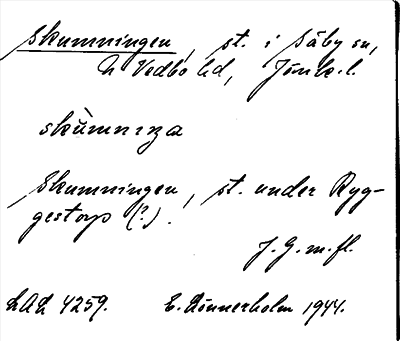 Skumningen, st. i Säby sn,
N Vedbo hd, Jönk. l.
skùmnıŋa
Skumningen, st. under Ryg-
gestorp (?).
J. G. m. fl.
LAL 4259. E. Linnerholm 1944.